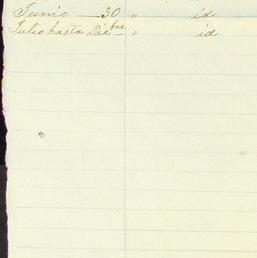 Junio — 30 " id
Julio hasta Dicbre — " id